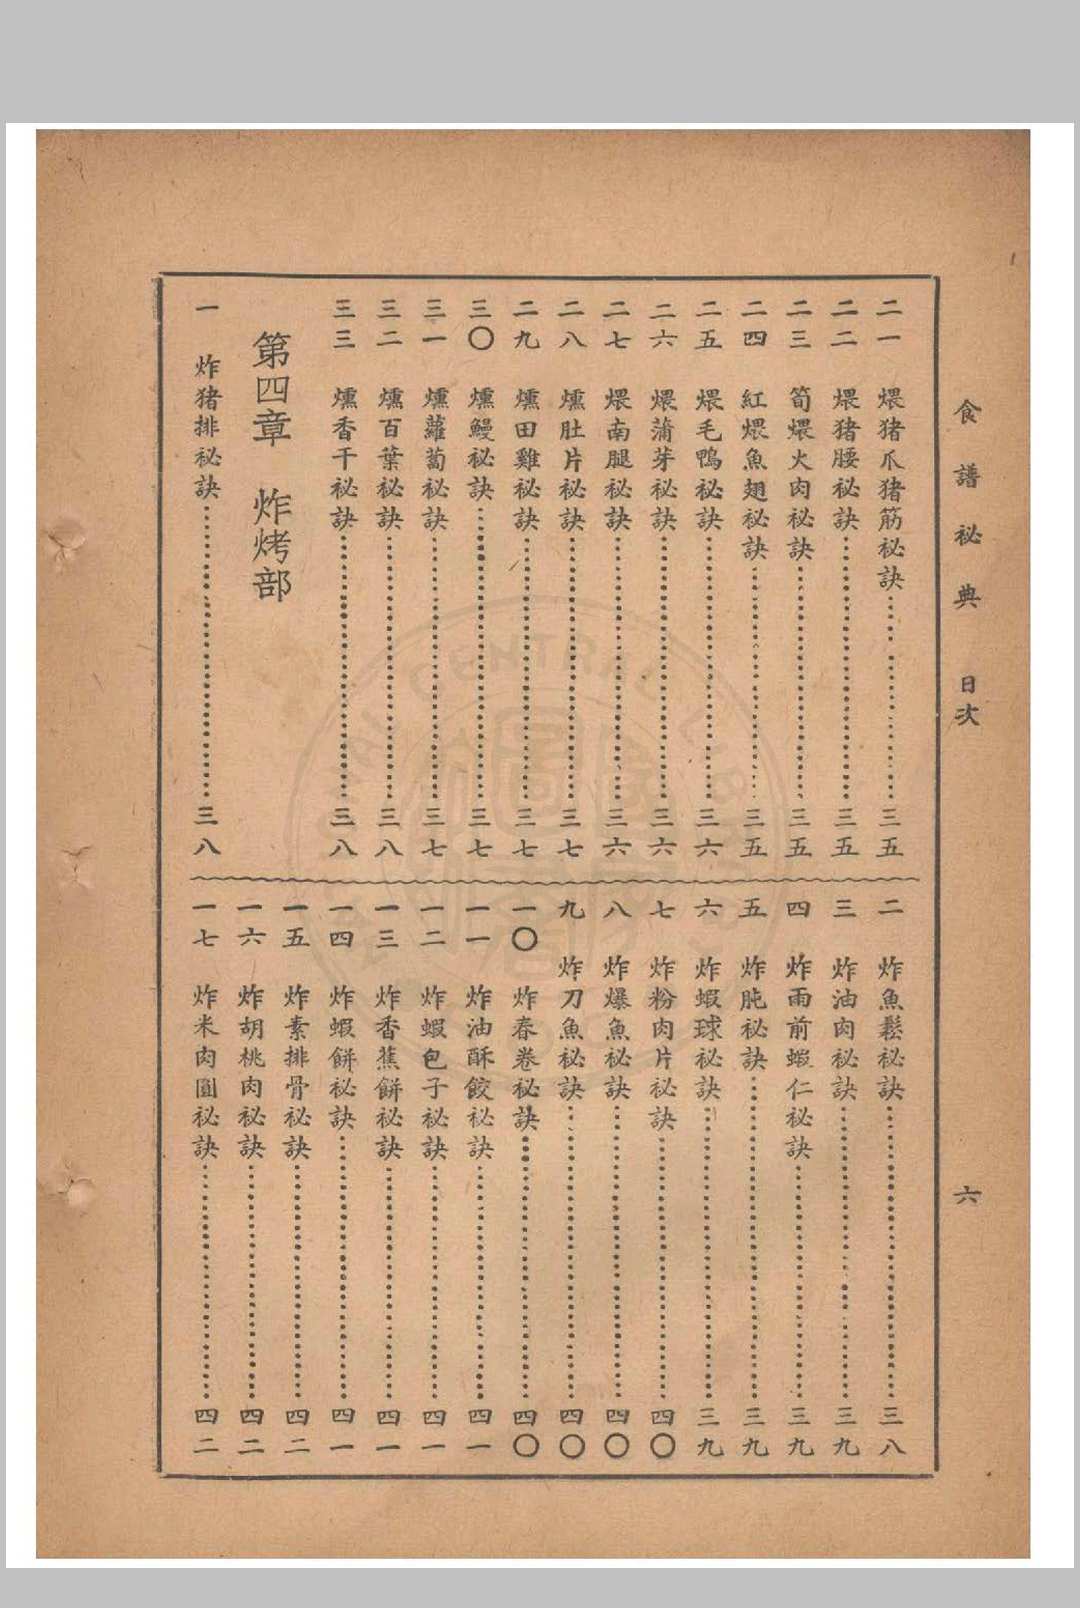 食譜秘典 目次 六
二一 煨猪爪猪筋祕訣 三五
二二 煨猪腰祕訣 三五
二三 筍煨火肉祕訣 三五
二四 紅煨魚翅祕訣 三五
二五 煨毛鴨祕訣 三六
二六 煨蒲芽祕訣 三六
二七 煨南腿祕訣 三六
二八 燻肚片祕訣 三七
二九 燻田雞祕訣 三七
三〇 燻鰻祕訣 三七
三一 燻蘿蔔祕訣 三七
三二 燻百葉祕訣 三八
三三 燻香干祕訣 三八
第四章 炸烤部
一 炸猪排祕訣 三八
二 炸魚鬆祕訣 三八
三 炸油肉祕訣 三九
四 炸雨前蝦仁祕訣 三九
五 炸肫祕訣 三九
六 炸蝦球祕訣 三九
七 炸粉肉片祕訣 四〇
八 炸爆魚祕訣 四〇
九 炸刀魚祕訣 四〇
一〇 炸春卷祕訣 四〇
一一 炸油酥餃祕訣 四一
一二 炸蝦包子祕訣 四一
一三 炸香蕉餅祕訣 四一
一四 炸蝦餅祕訣 四一
一五 炸素排骨祕訣 四二
一六 炸胡桃肉祕訣 四二
一七 炸米肉圓祕訣 四二